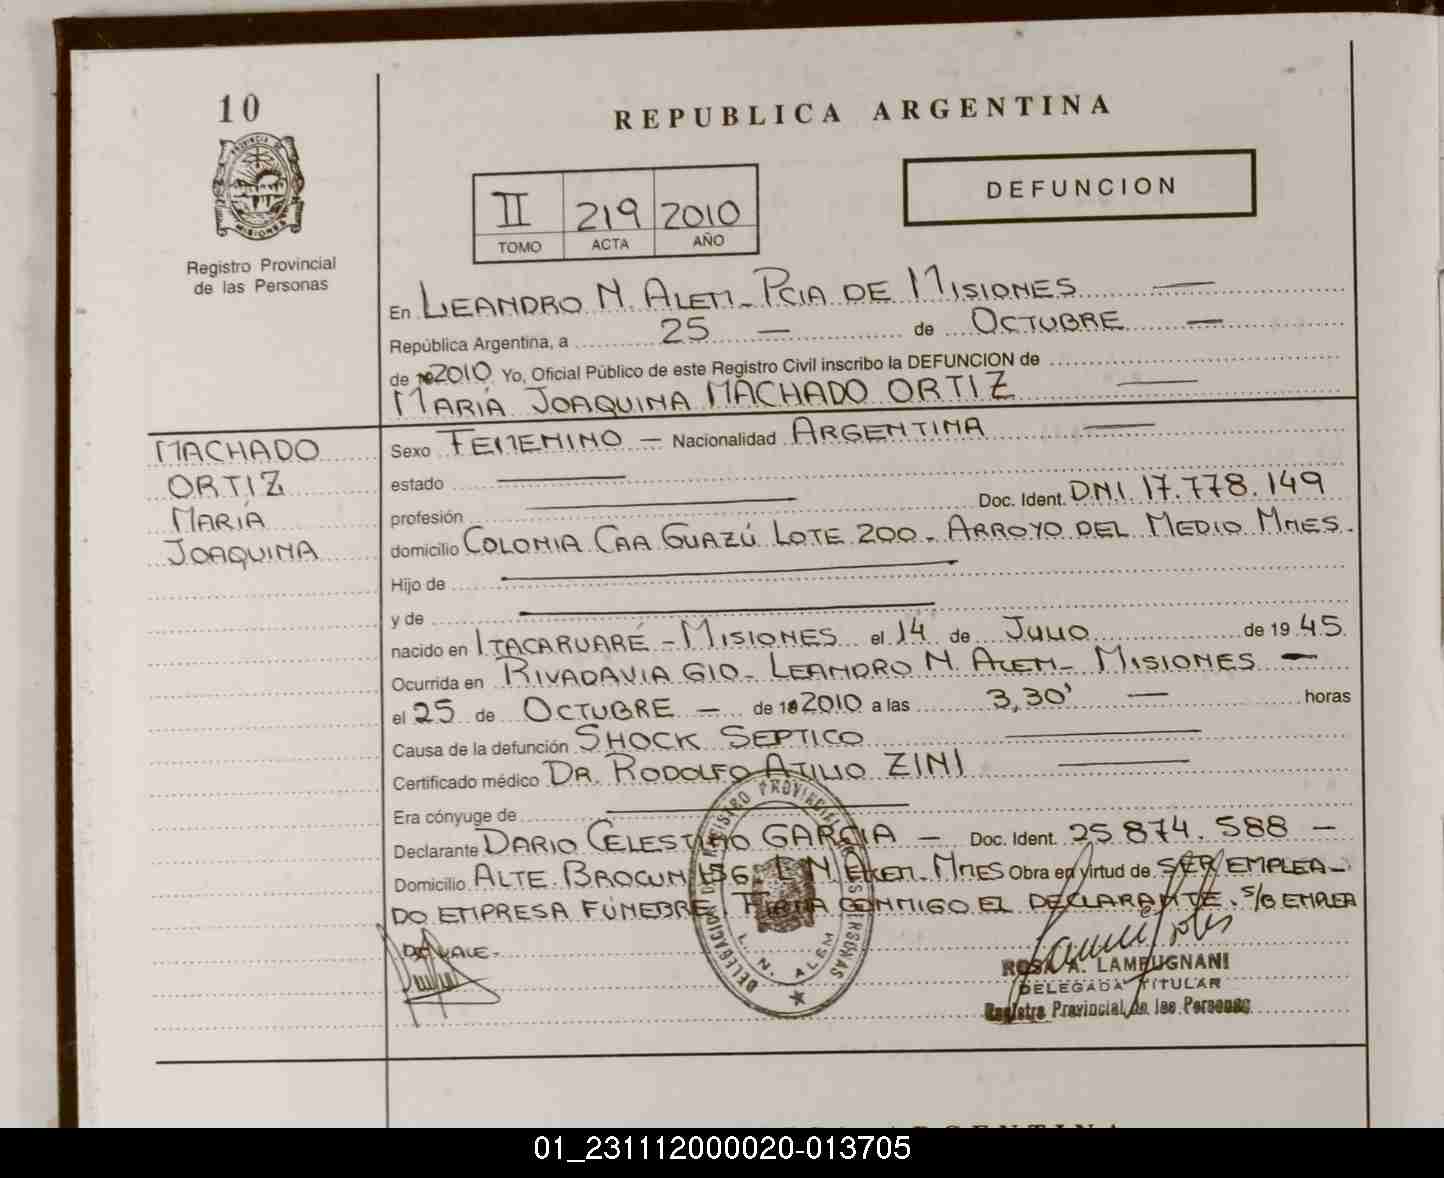 10
REPUBLICA ARGENTINA
PROVINCIA DE
MISIONES
Registro Provincial
de las Personas
II 219 2010
TOMO ACTA AÑO
DEFUNCION
En LEANDRO N. ALEM - PCIA DE MISIONES —
República Argentina, a 25 — de OCTUBRE —
de 2010 Yo, Oficial Público de este Registro Civil inscribo la DEFUNCION de
MARIA JOAQUINA MACHADO ORTIZ —
MACHADO
ORTIZ
MARÍA
JOAQUINA
Sexo FEMENINO — Nacionalidad ARGENTINA —
estado —
profesión — Doc. Ident. DNI. 17.778.149
domicilio COLONIA CAA GUAZÚ LOTE 200 - ARROYO DEL MEDIO MNES.
Hijo de —
y de —
nacido en ITACARUARÉ - MISIONES el 14 de JULIO de 19 45
Ocurrida en RIVADAVIA 610 - LEANDRO N. ALEM - MISIONES —
el 25 de OCTUBRE — de 2010 a las 3,30' — horas
Causa de la defunción SHOCK SEPTICO —
Certificado médico DR. RODOLFO ATILIO ZINI —
Era cónyuge de —
Declarante DARIO CELESTINO GARCIA — Doc. Ident. 25.874.588 —
Domicilio ALTE. BROWN L. N. ALEM - MNES Obra en virtud de SER EMPLEA-
DO EMPRESA FÚNEBRE. FIRMA CONMIGO EL DECLARANTE. S/B EMPLEA
DO VALE.
DELEGACION REGISTRO PROVINCIAL DE LAS PERSONAS
L. N. ALEM
ROSA A. LAMPUGNANI
DELEGADA TITULAR
Registro Provincial de las Personas
01_231112000020-013705